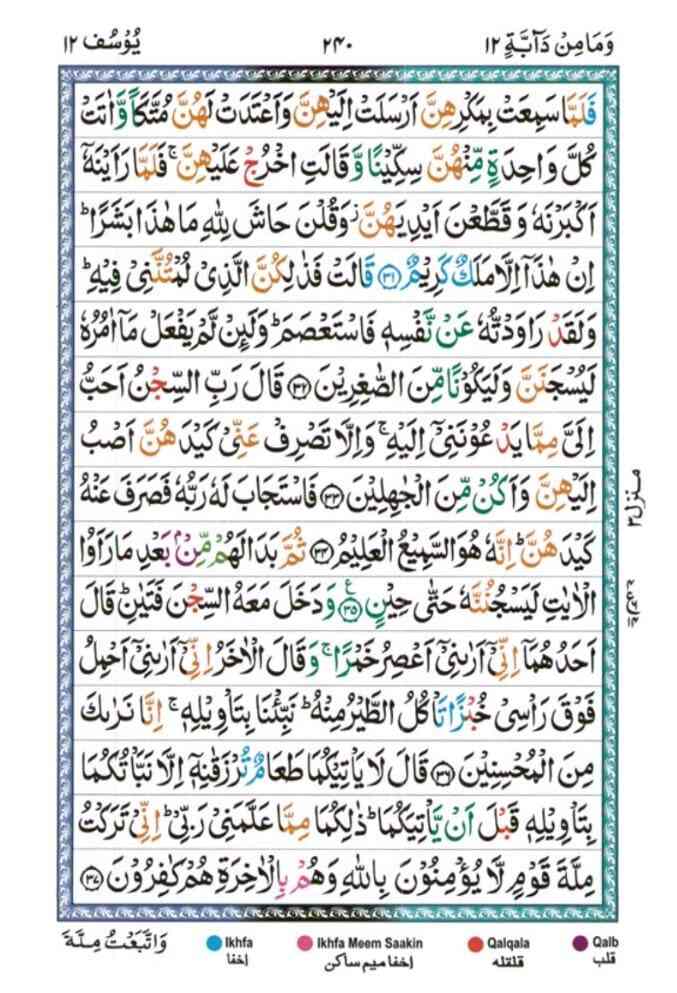 وَمَا مِنْ دَآبَّةٍ ١٢ ٢٤٠ يُوْسُف ١٢
فَلَمَّا سَمِعَتْ بِمَكْرِهِنَّ اَرْسَلَتْ اِلَيْهِنَّ وَاَعْتَدَتْ لَهُنَّ مُتَّكَاً وَّاٰتَتْ
كُلَّ وَاحِدَةٍ مِّنْهُنَّ سِكِّيْنًا وَّقَالَتِ اخْرُجْ عَلَيْهِنَّ ۚ فَلَمَّا رَاَيْنَهٗۤ
اَكْبَرْنَهٗ وَقَطَّعْنَ اَيْدِيَهُنَّ ؗ وَقُلْنَ حَاشَ لِلّٰهِ مَا هٰذَا بَشَرًا ؕ
اِنْ هٰذَاۤ اِلَّا مَلَكٌ كَرِيْمٌ ﴿۳۱﴾ قَالَتْ فَذٰلِكُنَّ الَّذِیْ لُمْتُنَّنِیْ فِيْهِ ؕ
وَلَقَدْ رَاوَدْتُّهٗ عَنْ نَّفْسِهٖ فَاسْتَعْصَمَ ؕ وَلَئِنْ لَّمْ يَفْعَلْ مَاۤ اٰمُرُهٗ
لَيُسْجَنَنَّ وَلَيَكُوْنًا مِّنَ الصّٰغِرِيْنَ ﴿۳۲﴾ قَالَ رَبِّ السِّجْنُ اَحَبُّ
اِلَیَّ مِمَّا يَدْعُوْنَنِیْۤ اِلَيْهِ ۚ وَاِلَّا تَصْرِفْ عَنِّیْ كَيْدَهُنَّ اَصْبُ
اِلَيْهِنَّ وَاَكُنْ مِّنَ الْجٰهِلِيْنَ ﴿۳۳﴾ فَاسْتَجَابَ لَهٗ رَبُّهٗ فَصَرَفَ عَنْهُ
كَيْدَهُنَّ ؕ اِنَّهٗ هُوَ السَّمِيْعُ الْعَلِيْمُ ﴿۳۴﴾ ثُمَّ بَدَا لَهُمْ مِّنْۢ بَعْدِ مَا رَاَوُا
الْاٰيٰتِ لَيَسْجُنُنَّهٗ حَتّٰى حِيْنٍ ﴿۳۵﴾ ع وَدَخَلَ مَعَهُ السِّجْنَ فَتَيٰنِ ؕ قَالَ
اَحَدُهُمَاۤ اِنِّیْۤ اَرٰىنِیْۤ اَعْصِرُ خَمْرًا ۚ وَقَالَ الْاٰخَرُ اِنِّیْۤ اَرٰىنِیْۤ اَحْمِلُ
فَوْقَ رَاْسِیْ خُبْزًا تَاْكُلُ الطَّيْرُ مِنْهُ ؕ نَبِّئْنَا بِتَاْوِيْلِهٖ ۚ اِنَّا نَرٰىكَ
مِنَ الْمُحْسِنِيْنَ ﴿۳۶﴾ قَالَ لَا يَاْتِيْكُمَا طَعَامٌ تُرْزَقٰنِهٖۤ اِلَّا نَبَّاْتُكُمَا
بِتَاْوِيْلِهٖ قَبْلَ اَنْ يَّاْتِيَكُمَا ؕ ذٰلِكُمَا مِمَّا عَلَّمَنِیْ رَبِّیْ ؕ اِنِّیْ تَرَكْتُ
مِلَّةَ قَوْمٍ لَّا يُؤْمِنُوْنَ بِاللّٰهِ وَهُمْ بِالْاٰخِرَةِ هُمْ كٰفِرُوْنَ ﴿۳۷﴾
منزل ٣
وَاتَّبَعْتُ مِلَّةَ
Ikhfa اخفا
Ikhfa Meem Saakin اخفا میم ساکن
Qalqala قلقله
Qalb قلب